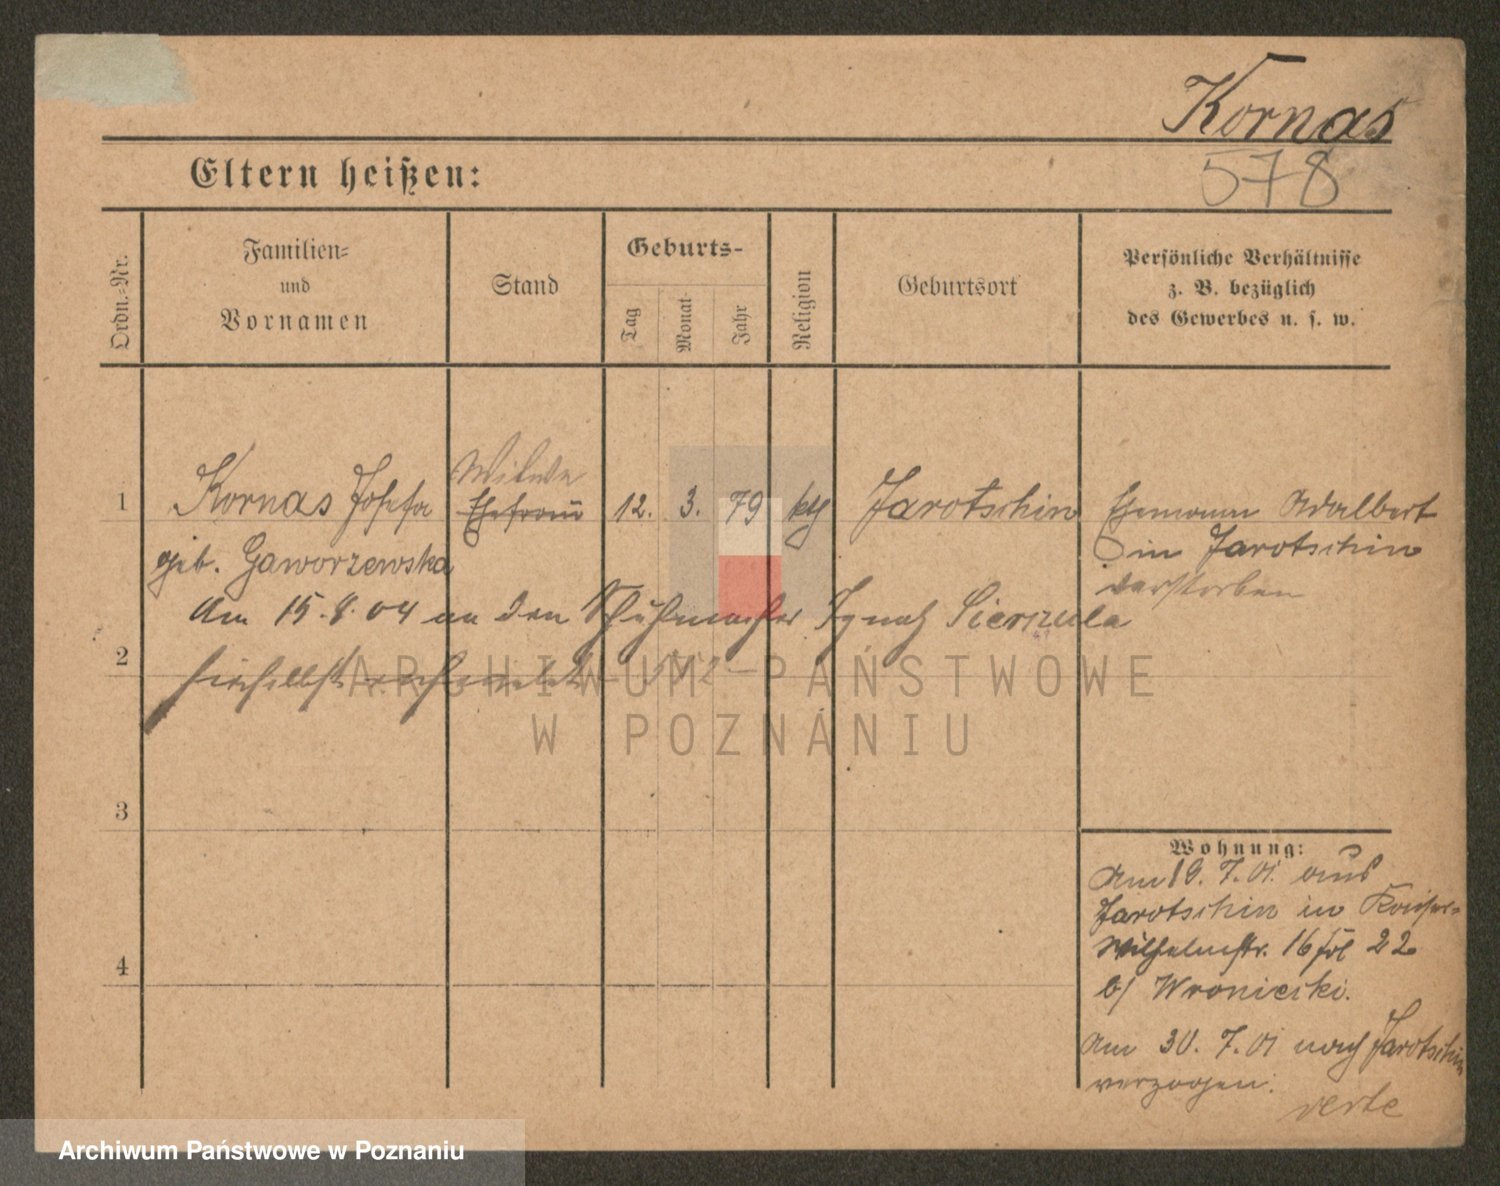 Kornas
578
Eltern heißen:
Ordn.-Nr.
Familien-
und
Vornamen
Stand
Geburts-
Tag
Monat
Jahr
Religion
Geburtsort
Persönliche Verhältnisse
z. B. bezüglich
des Gewerbes u. s. w.
Witwe
1 Kornas Josefa Ehefrau 12. 3. 79 kth Jarotschin
geb. Gaworzewska
Ehemann Adalbert
in Jarotschin
verstorben
Am 15. 8. 04 an den Schuhmacher Ignatz Sierszula
2
hierselbst verh.
3
4
Wohnung:
Am 19. 7. 01. aus
Jarotschin in Kaiser-
Wilhelmstr. 16 22
b/ Wroniecki.
Am 30. 7. 01 nach Jarotschin
verzogen.
verte
ARCHIWUM PAŃSTWOWE
W POZNANIU
Archiwum Państwowe w Poznaniu